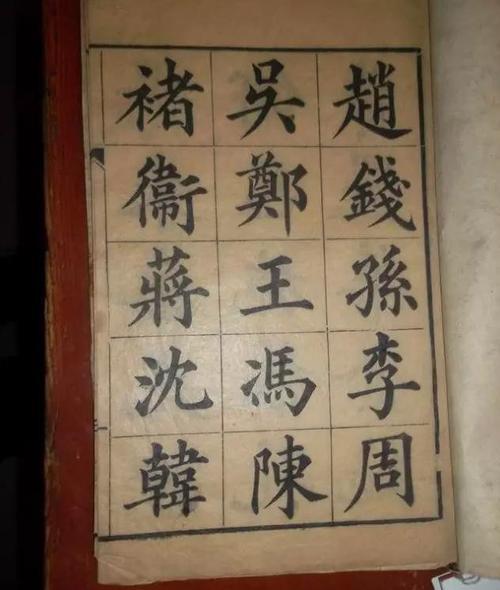 趙錢孫李周
吳鄭王馮陳
褚衞蔣沈韓